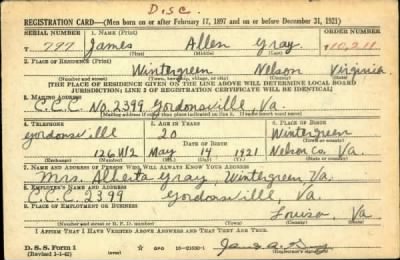 Disc.
REGISTRATION CARD—(Men born on or after February 17, 1897 and on or before December 31, 1921)
SERIAL NUMBER 1. NAME (Print) ORDER NUMBER
T 797 James Allen Gray 10,211
(First) (Middle) (Last)
2. PLACE OF RESIDENCE (Print)
Wintergreen Nelson Virginia
(Number and street) (Town, township, village, or city) (County) (State)
[THE PLACE OF RESIDENCE GIVEN ON THE LINE ABOVE WILL DETERMINE LOCAL BOARD
JURISDICTION; LINE 2 OF REGISTRATION CERTIFICATE WILL BE IDENTICAL]
3. MAILING ADDRESS
C.C.C. No. 2399 Gordonsville, Va.
(Mailing address if other than place indicated on line 2. If same insert word same)
4. TELEPHONE 5. AGE IN YEARS 6. PLACE OF BIRTH
Gordonsville 20 Wintergreen
DATE OF BIRTH (Town or county)
126W2 May 14 1921 Nelson Co. Va.
(Exchange) (Number) (Mo.) (Day) (Yr.) (State or country)
7. NAME AND ADDRESS OF PERSON WHO WILL ALWAYS KNOW YOUR ADDRESS
Mrs. Alberta Gray, Wintergreen, Va.
8. EMPLOYER'S NAME AND ADDRESS
C.C.C. 2399 Gordonsville, Va.
9. PLACE OF EMPLOYMENT OR BUSINESS
Louisa, Va.
(Number and street or R. F. D. number) (Town) (County) (State)
I AFFIRM THAT I HAVE VERIFIED ABOVE ANSWERS AND THAT THEY ARE TRUE.
D. S. S. Form 1
(Revised 1-1-42) GPO 16-21630-1 James A. Gray
(Registrant's signature)